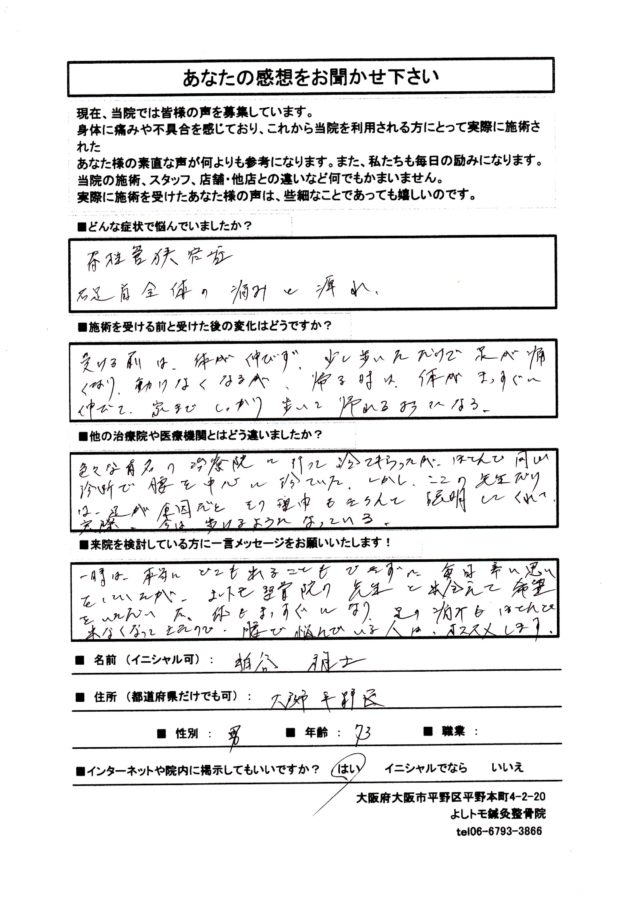 あなたの感想をお聞かせ下さい
現在、当院では皆様の声を募集しています。
身体に痛みや不具合を感じており、これから当院を利用される方にとって実際に施術さ
れた
あなた様の素直な声が何よりも参考になります。また、私たちも毎日の励みになります。
当院の施術、スタッフ、店舗・他店との違いなど何でもかまいません。
実際に施術を受けたあなた様の声は、些細なことであっても嬉しいのです。
■どんな症状で悩んでいましたか？
脊柱管狭窄症
右足首全体の痛みと痺れ、
■施術を受ける前と受けた後の変化はどうですか？
受ける前は、体が伸びず、少し歩いただけで足が痛
くなり、動けなくなるが、帰る時は、体がまっすぐに
伸びて、家までしっかり歩いて帰れるようになる。
■他の治療院や医療機関とはどう違いましたか？
色々な有名の治療院に行って診てもらったが、ほとんど同じ
診断で腰を中心に診ていた。しかし、ここの先生だけ
は、足が原因だとその理由もきちんと説明してくれて、
実際、今は歩けるようになっている。
■来院を検討している方に一言メッセージをお願いいたします！
一時は本当にどこも出ることもできずに毎日辛い思い
をしていたが、よしトモ整骨院の先生と出会えて希望
をいただいた。体もまっすぐになり、足の痛みもほとんど
出なくなってきたので、腰で悩んでいる人は、オススメします。
■ 名前（イニシャル可）：
■ 住所（都道府県だけでも可）： 大阪市平野区
■ 性別： 男 ■ 年齢： 73 ■ 職業：
■インターネットや院内に掲示してもいいですか？ はい イニシャルでなら いいえ
大阪府大阪市平野区平野本町4-2-20
よしトモ鍼灸整骨院
tel06-6793-3866